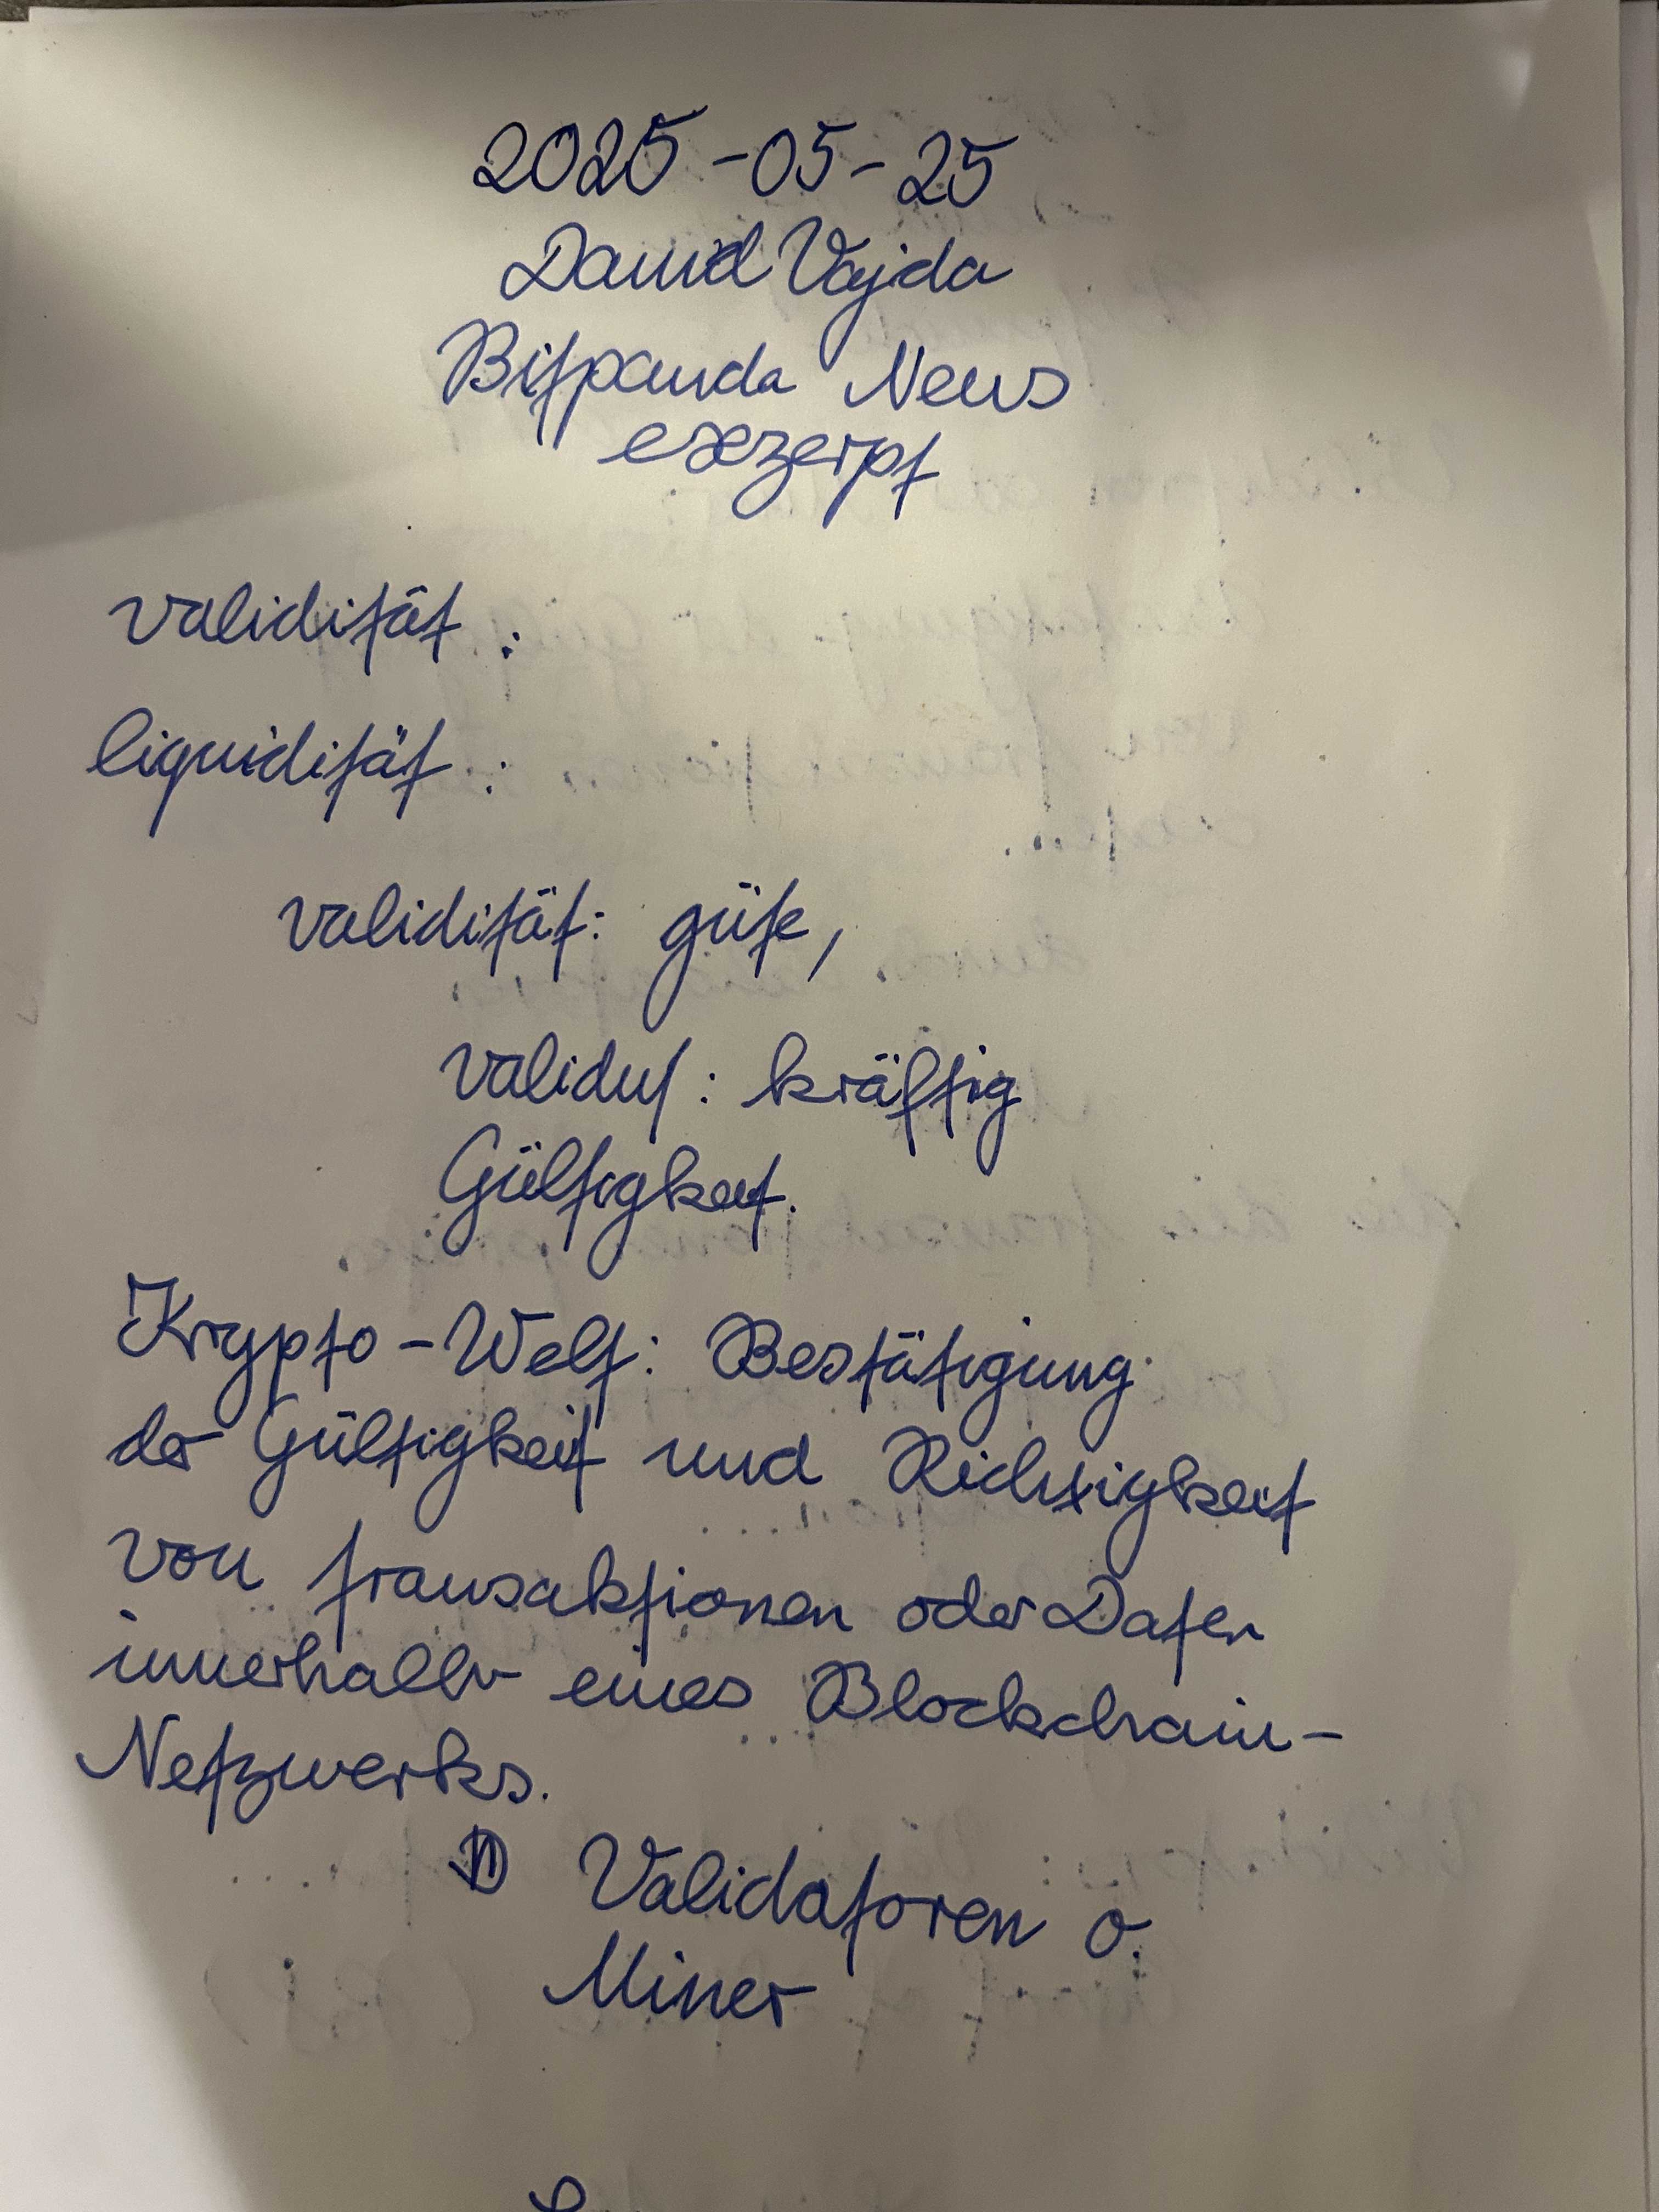 2025-05-25
David Vajda
Bitpanda News
exzerpt
validität:
liquidität:
validität: güte,
validus: kräftig
Gültigkeit.
Krypto-Welt: Bestätigung
der Gültigkeit und Richtigkeit
von transaktionen oder Daten
innerhalb eines Blockchain-
Netzwerks.
Validatoren o.
Miner